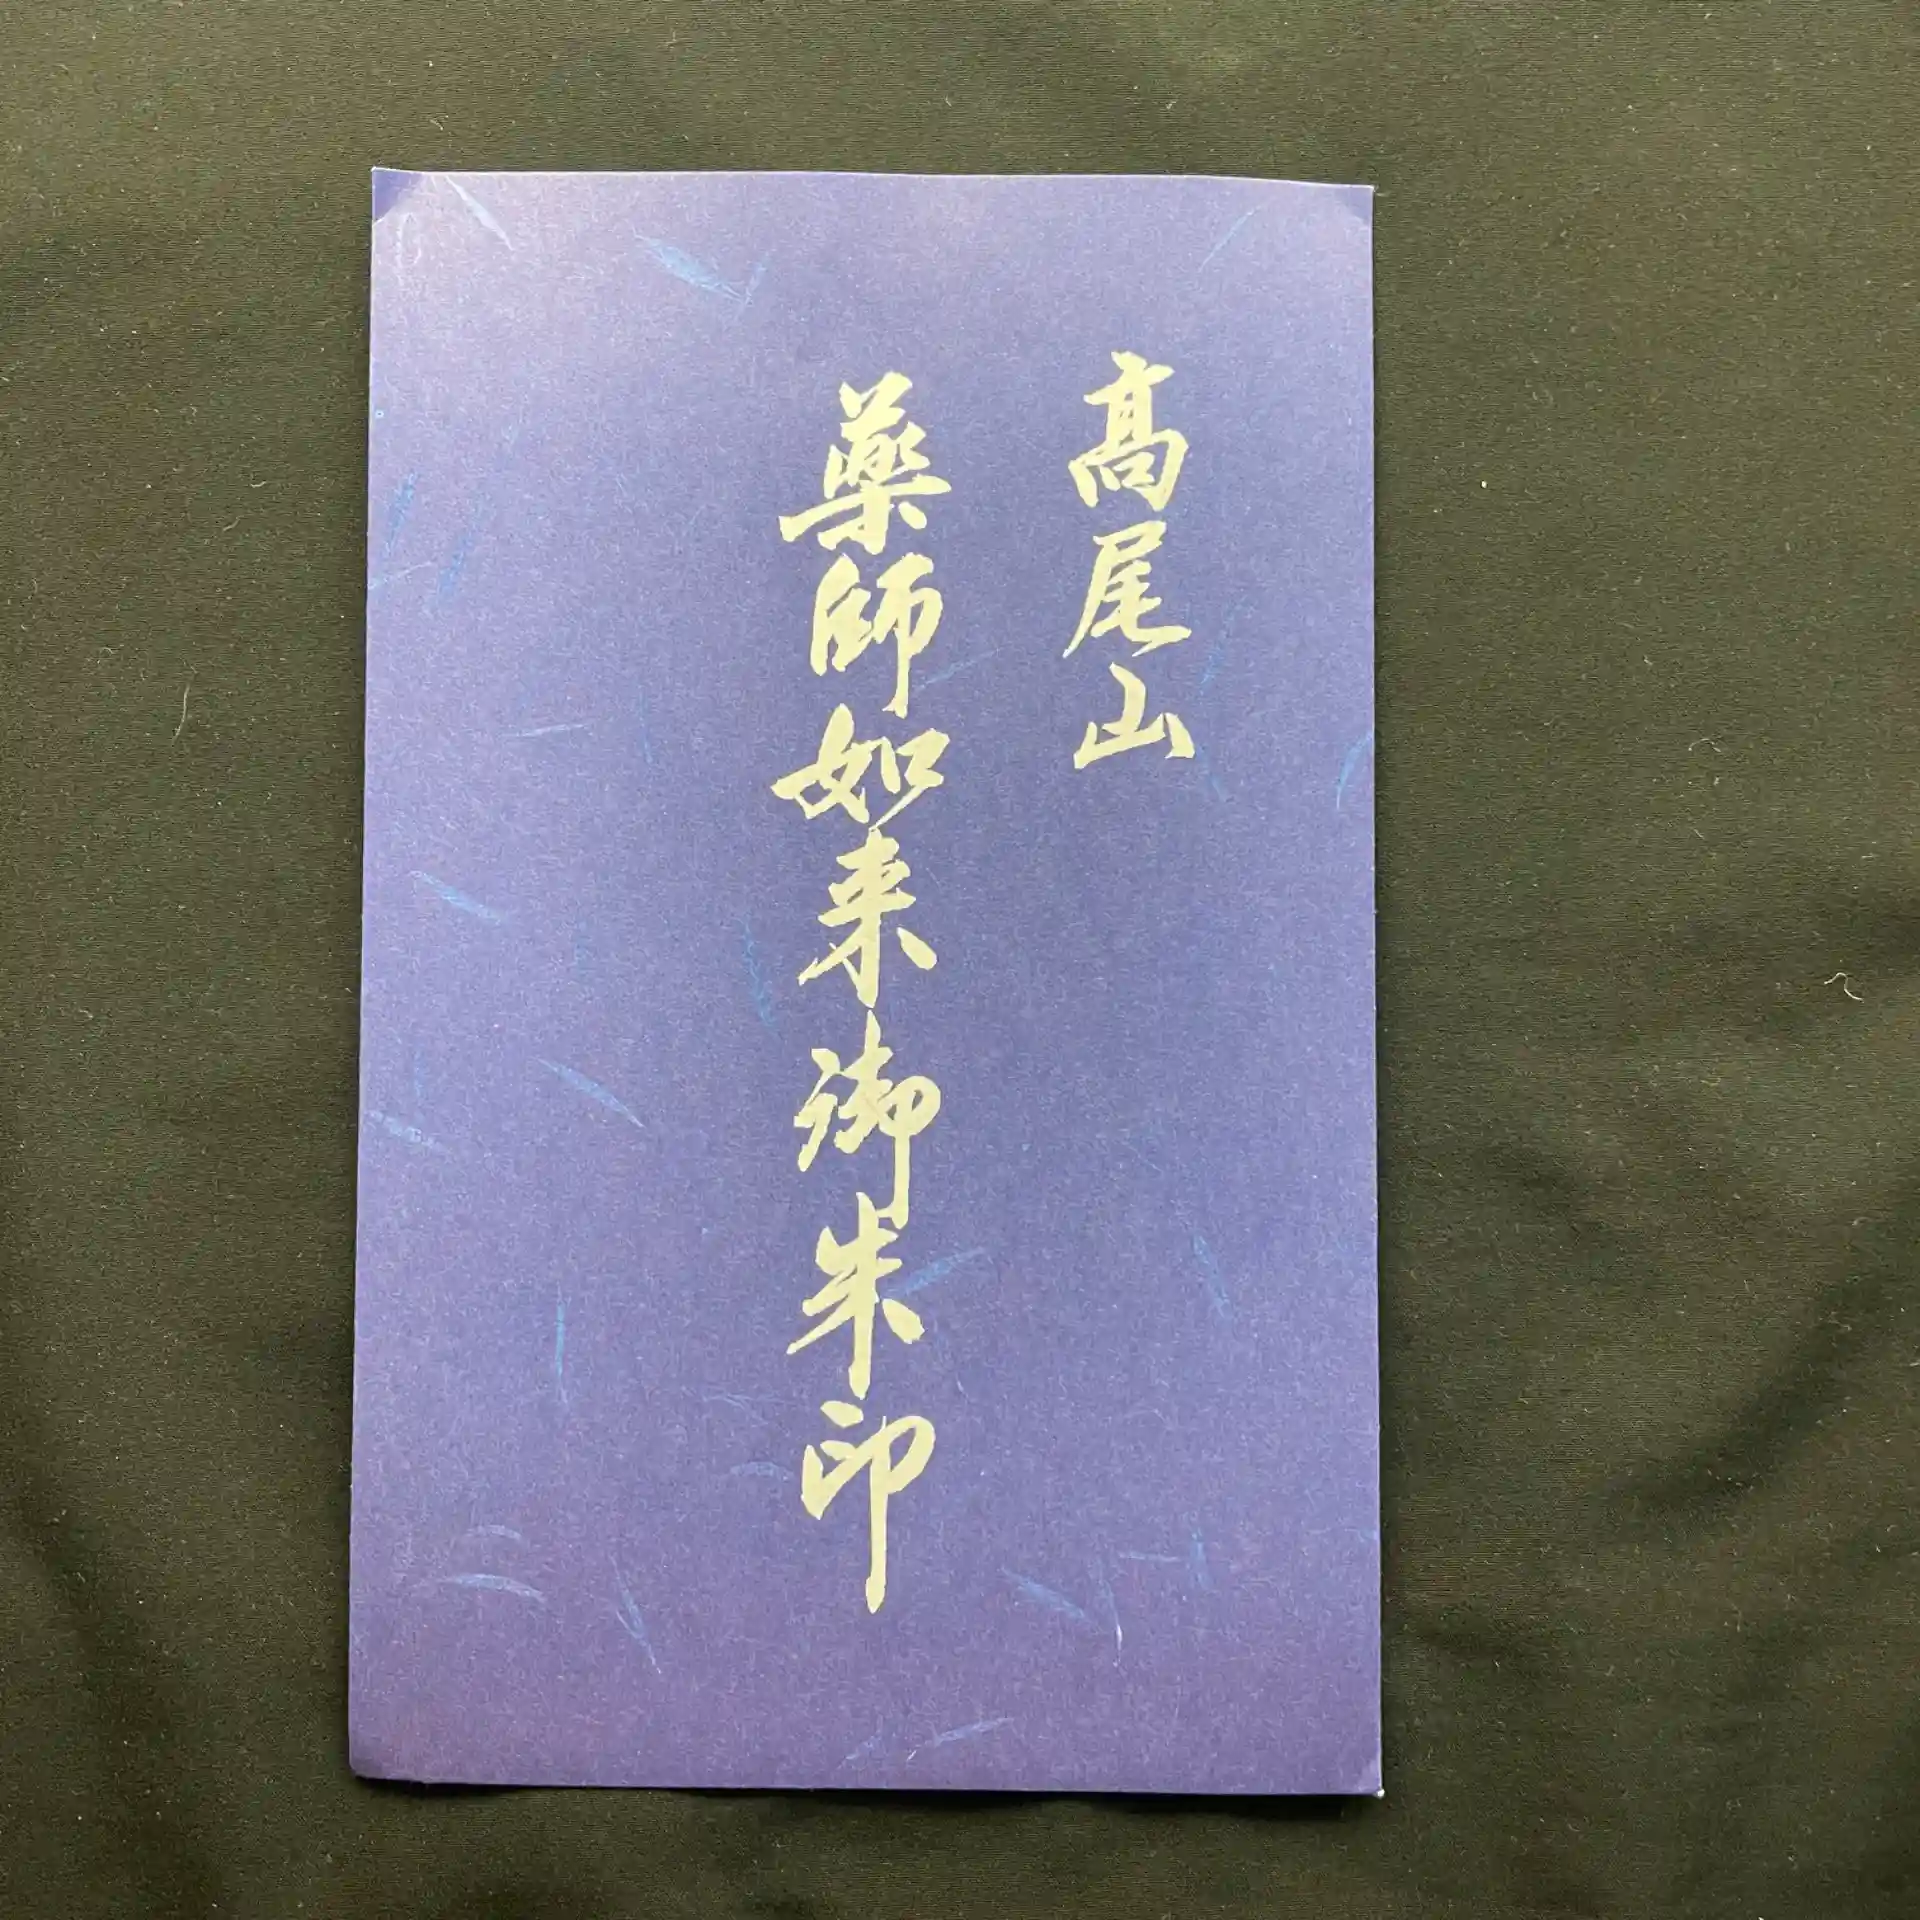 髙尾山
薬師如来御朱印